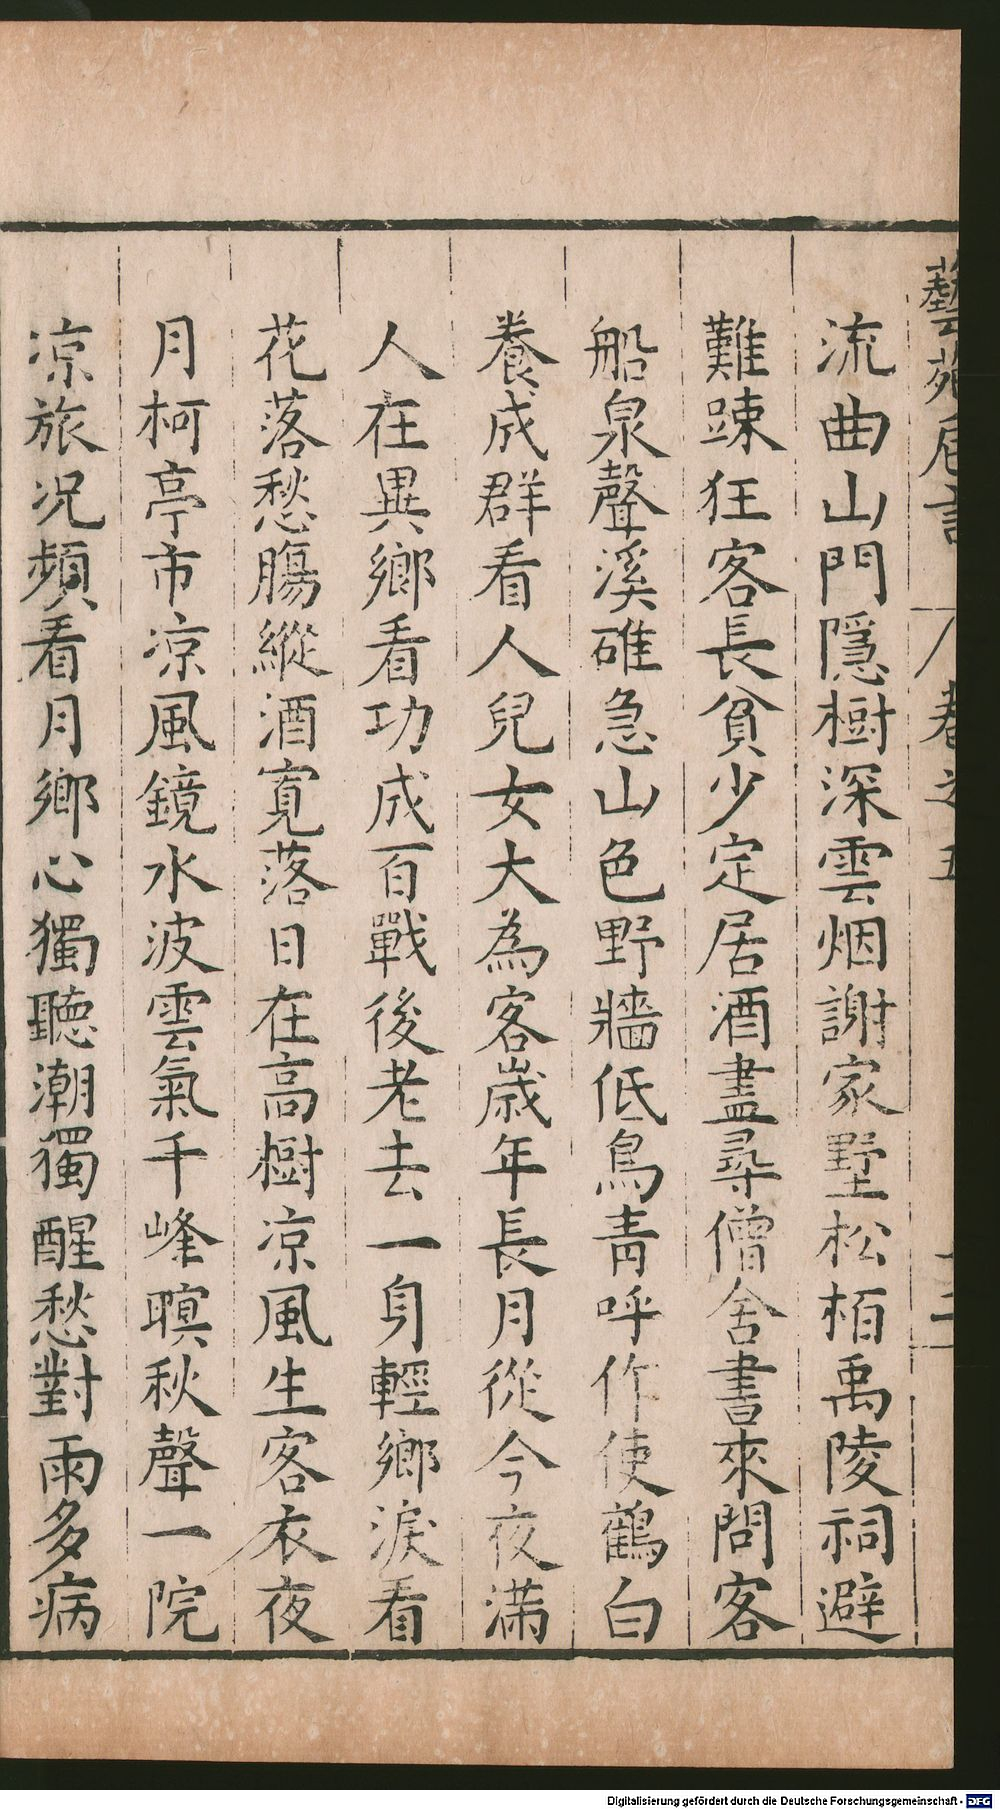 藝苑巵言 卷之五 十二
流曲山門隱樹深雲烟謝家墅松栢禹陵祠避
難踈狂客長貧少定居酒盡尋僧舍書來問客
船泉聲溪碓急山色野牆低鳥青呼作使鶴白
養成群看人兒女大為客歲年長月從今夜滿
人在異鄉看功成百戰後老去一身輕鄉淚看
花落愁腸縱酒寬落日在高樹凉風生客衣夜
月柯亭市凉風鏡水波雲氣千峰暝秋聲一院
凉旅况頻看月鄉心獨聽潮獨醒愁對雨多病
Digitalisierung gefördert durch die Deutsche Forschungsgemeinschaft - DFG